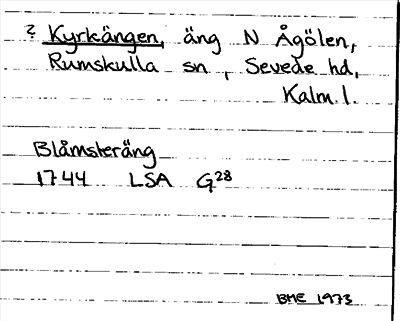 ? Kyrkängen, äng N Ågölen,
Rumskulla sn, Sevede hd,
Kalm. l.
Blåmsteräng
1744 LSA G28
BME 1973